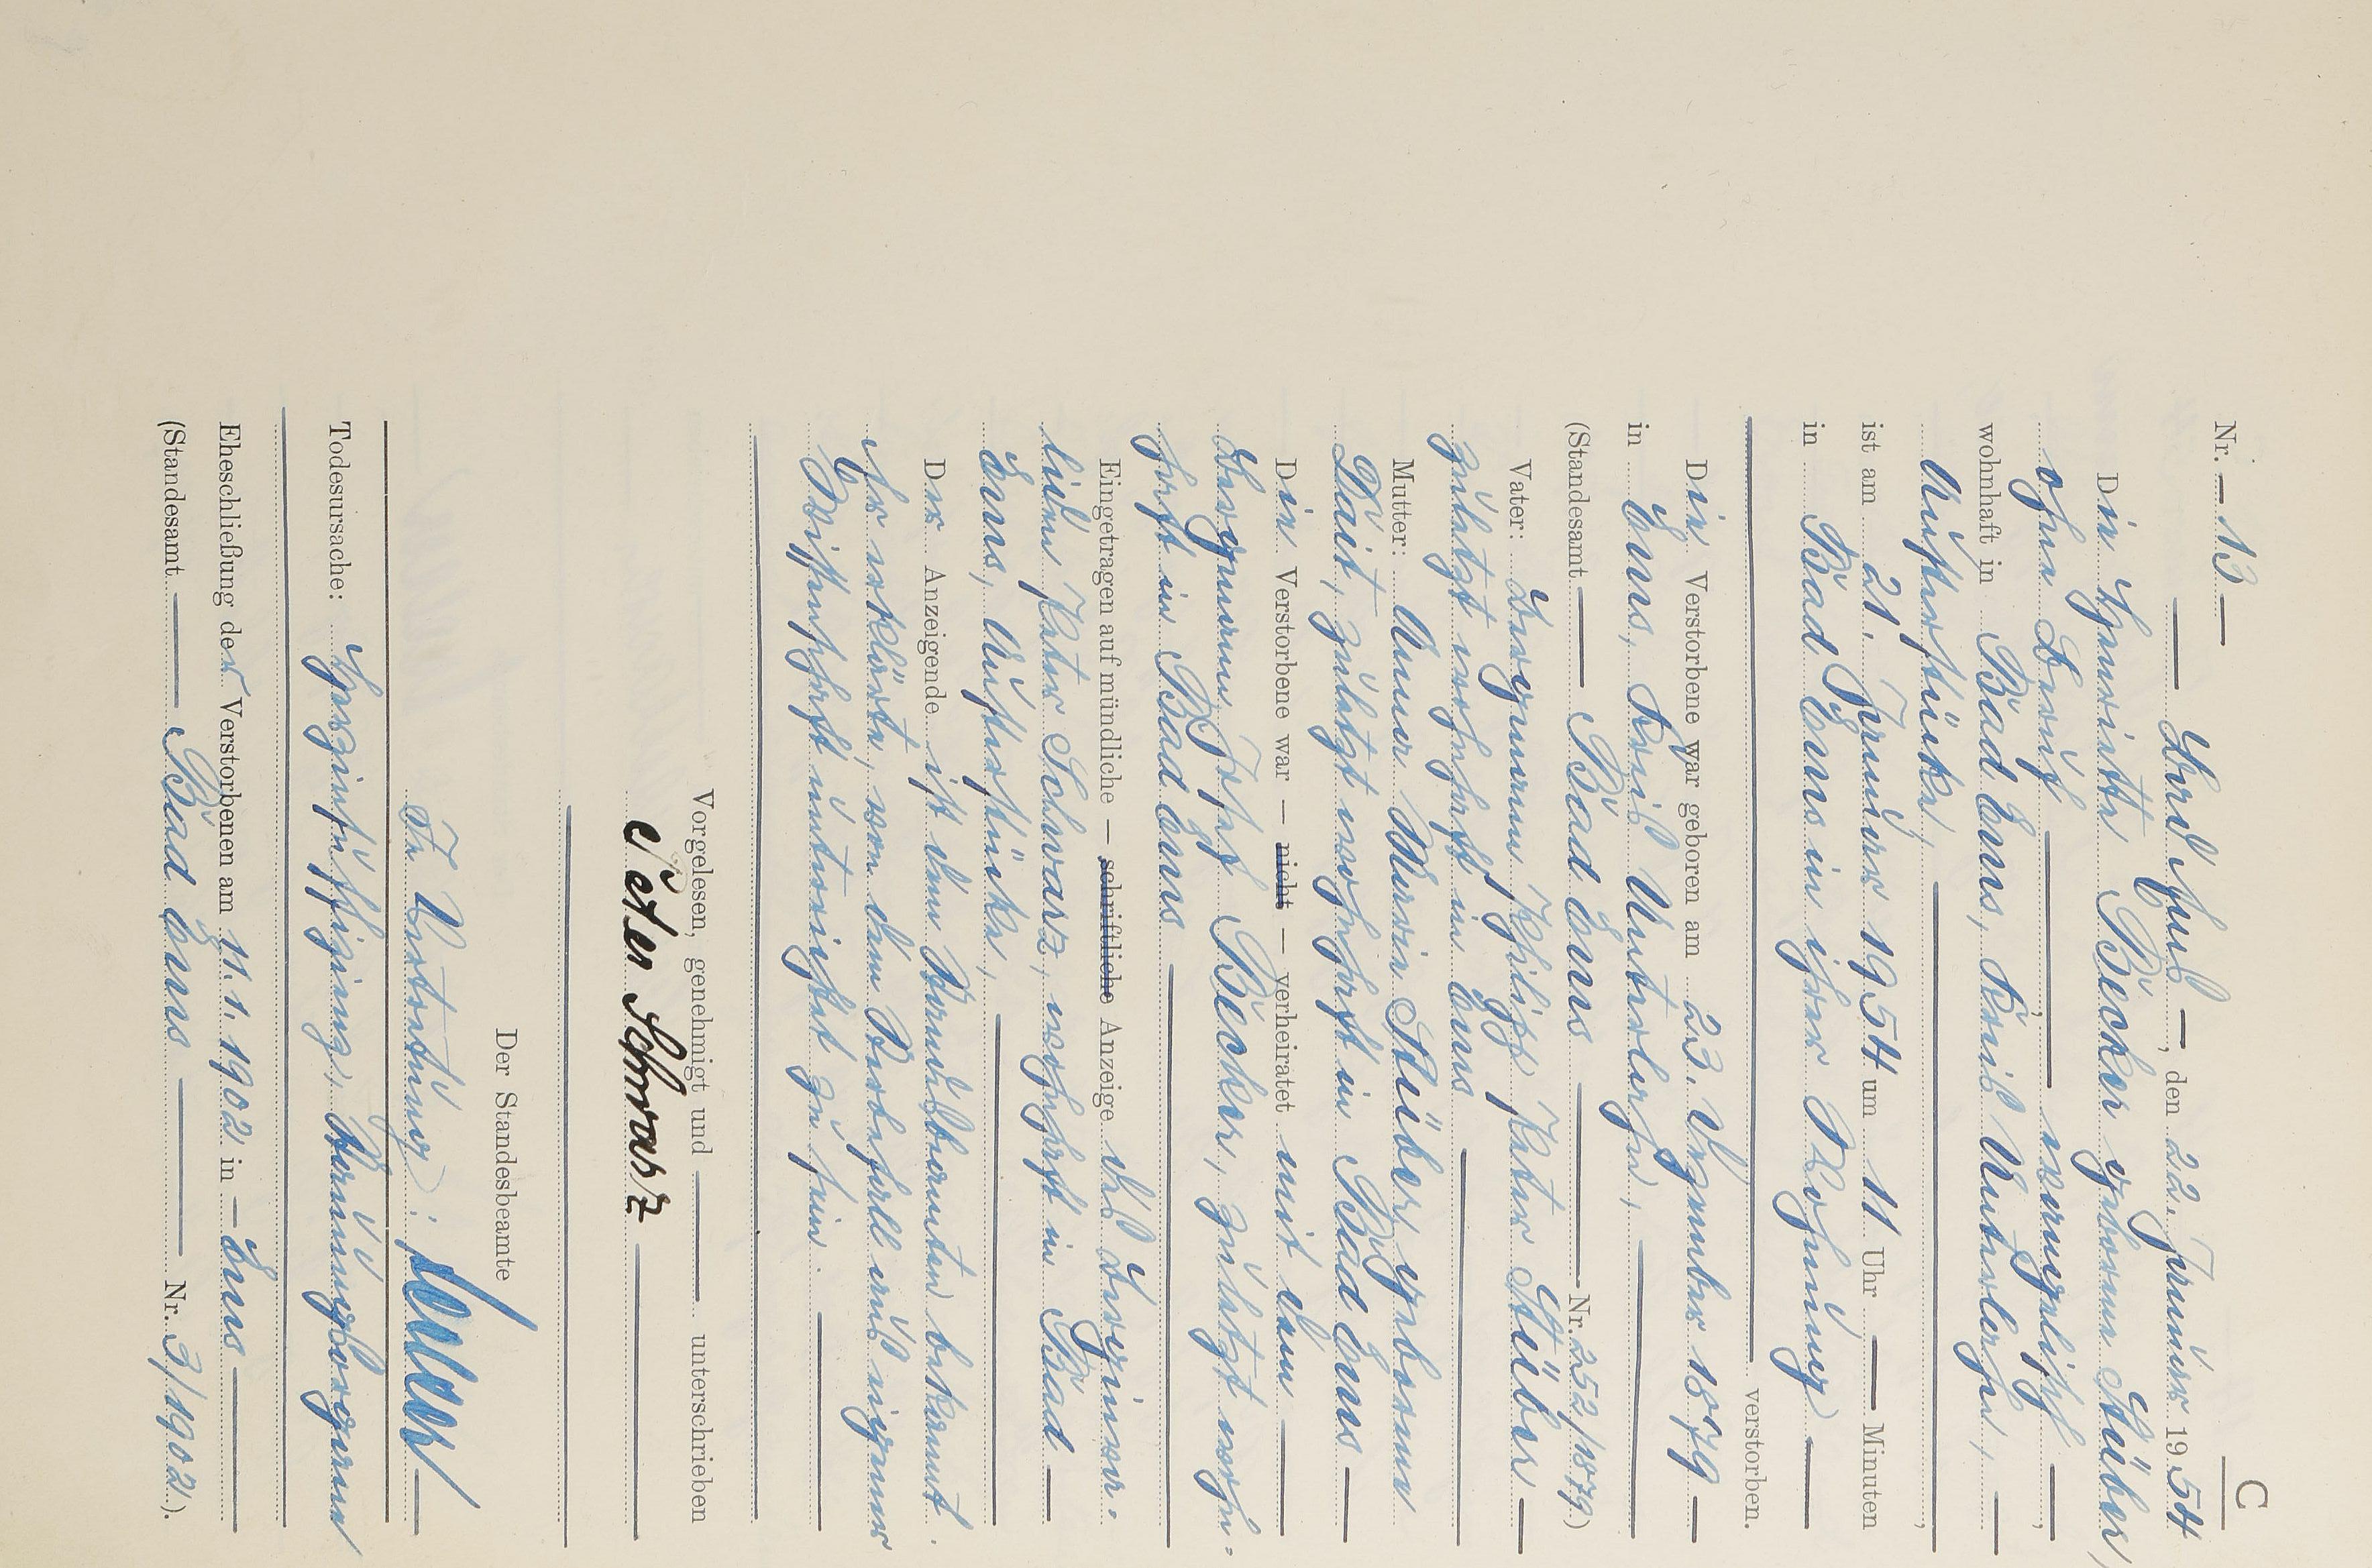 C
Nr. 13
Bad Ems, den 22. Januar 1954
Die Henriette Becker geborene Stüber,
ohne Beruf, evangelisch,
wohnhaft in Bad Ems, Kreis Unterlahn,
ist am 21. Januar 1954 um 11 Uhr Minuten
in Bad Ems in ihrer Wohnung
verstorben.
Die Verstorbene war geboren am 23. Dezember 1879
in Ems, Kreis Unterlahn,
(Standesamt Bad Ems Nr. 252/1879)
Vater: Bergmann Philipp Peter Stüber
zuletzt wohnhaft in Ems
Mutter: Anna Maria Stüber, geborene
zuletzt wohnhaft in Bad Ems
Die Verstorbene war — nicht — verheiratet mit dem
Bergmann Josef Becker, zuletzt wohn-
haft in Bad Ems
Eingetragen auf mündliche — schriftliche Anzeige des Berginva-
liden Peter Schwarz, wohnhaft in Bad
Ems,
Der Anzeigende ist dem Standesbeamten bekannt.
Er erklärte, von dem Sterbefall aus eigener
Wissenschaft unterrichtet zu sein.
Vorgelesen, genehmigt und unterschrieben
Peter Schwarz
Der Standesbeamte
In Vertretung:
Todesursache:
Eheschließung der Verstorbenen am 11.1.1902 in Ems
(Standesamt Bad Ems Nr. 3/1902).